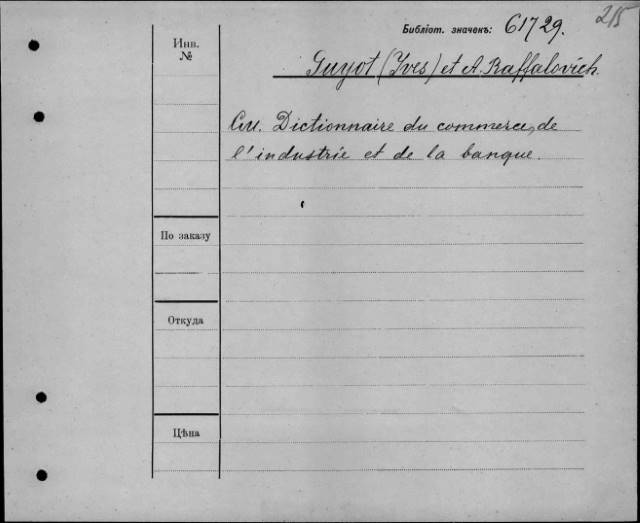 215
Библіот. значекъ: 61729.
Инв.
№
Guyot (Yves) et A. Raffalovich.
См. Dictionnaire du commerce, de
l'industrie et de la banque.
По заказу
Откуда
Цѣна